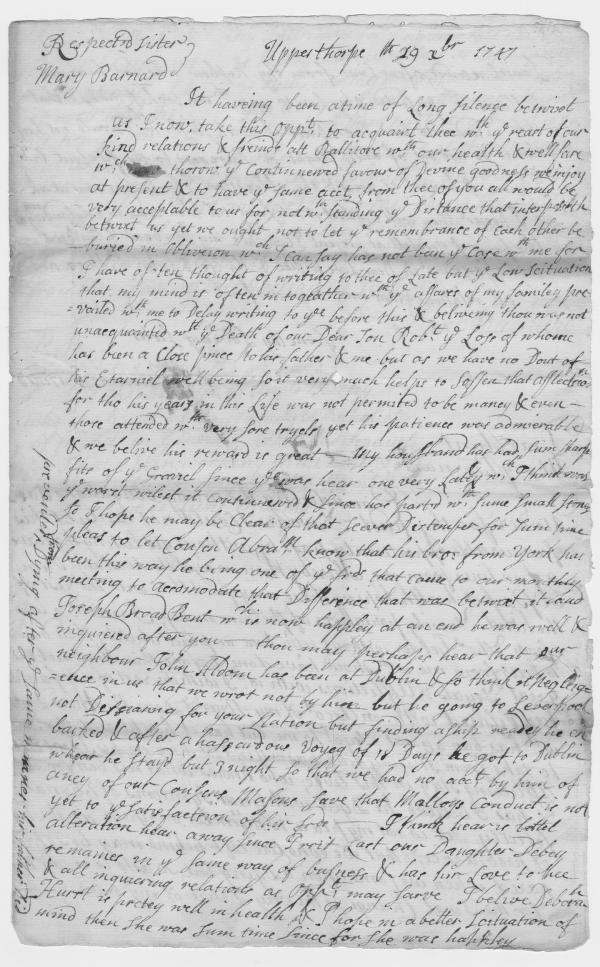 Respectd Sister
Mary Barnard
Upperthorpe th 29 xbr 1747
It haveing been a time of Long silence betwixt
us I now take this oppt. to acquaint thee wth ye reart of our
kind relations & freinds att Ballitore wth our health & wellfare
wch thorow ye Continnewed favour of Devine goodness we injoy
at present & to have ye same acct. from thee of you all would be
very acceptable to us for notwthstanding ye Distance that interposeth
betwixt us yet we ought not to let ye remembrance of each other be
buried in Obliveron wch I can say has not bun ye Case wth me for
I have often thought of writing to thee of Late but ye Low scituation
that my mind is often in togeather wth ye affares of my familey pre-
=vailed wth me to Delay writing to ye before this & beliveing thou was not
unacquainted wth ye Death of our Dear Son Robt. ye Loss of whome
has been a Close to his father & me but as we have no Dout of
his Etarniel well being so it very much helps to soffen that afflection
for tho his years in this Life was not permited to be maney & even
those attended wth very sore tryels yet his patience was admerable
& we belive his reward is great – My housband has had sum sharp
fits of ye Graviel since ye was hear one very Lately wch I think was
ye worst wilest it Continnewed & since has partd wth sume small stons
so I hope he may be Clear of that seever Distemper for sum time
pleas to let Cousen Abrah. know that his bror. from York has
been this way he being one of ye frds that came to our monthly
meeting to acromodate that Difference that was betwixt it and
Joseph BroadBent wch is now happley at an end he was well &
inquiered after you – thou may perhaps hear that our
neighbour John Aldom has been at Dublin & so think it neglige-
=ence in us that we wrot not by him but he going to Leverpool
not Desiaring for your Nation but finding a ship readey he em
barked & after a hassardous voyeg of 18 Days he got to Dublin
whear he stayd but 3 night so that we had no acct. by him of
aney of our Cousens Masons save that Malloys Conduct is not
yet to ye satisfactrion of his frds I think hear is littel
alteration hear away since I writ Last our Daughter Debey
remaines in ye same way of busness & has hir Love to thee
& all inquiering relations as oppt. may sarve I belive Deborah
Hurst is pretey well in health & I hope in a better scituation of
mind then she was sum time since for she was happley